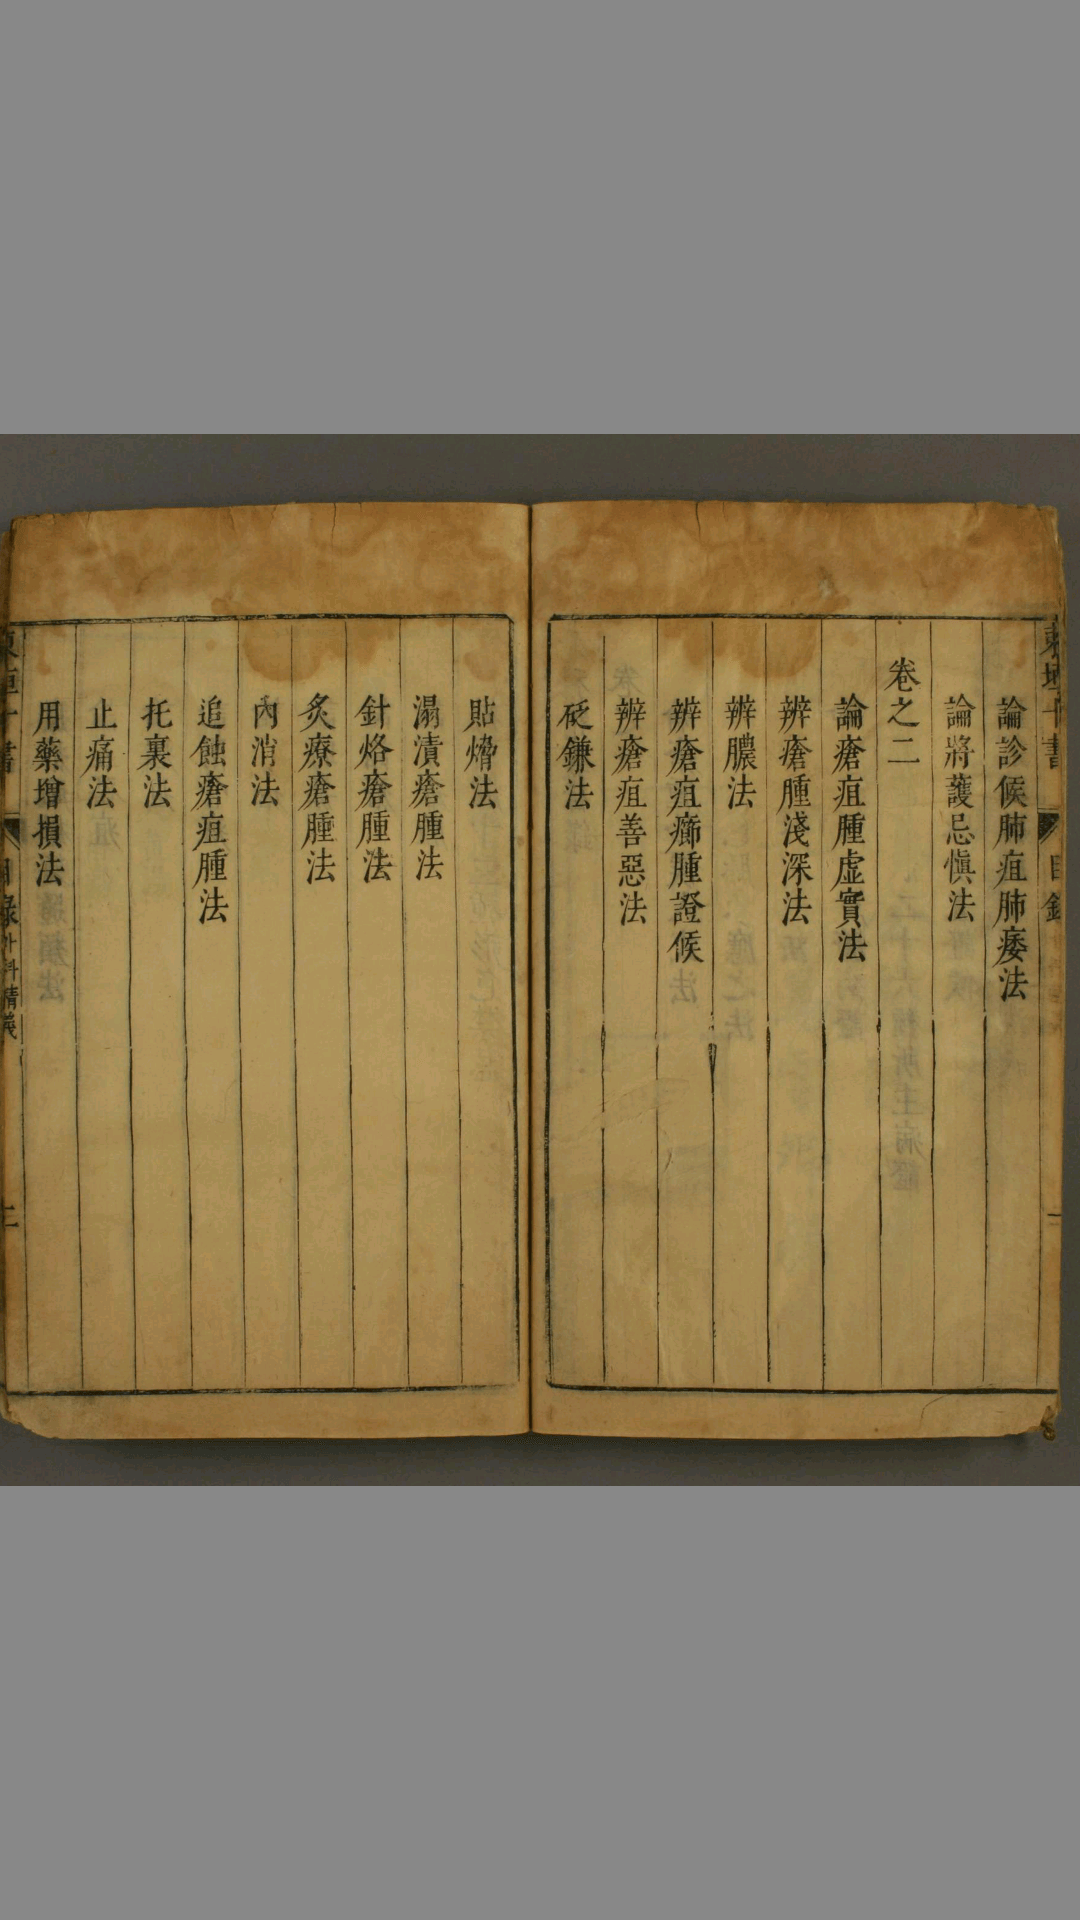 論診候肺疽肺痿法
論將護忌慎法
卷之二
論瘡疽腫虛實法
辨瘡腫淺深法
辨膿法
辨瘡疽癤腫證候
辨瘡疽善惡法
砭鎌法
貼熁法
溻漬瘡腫法
針烙瘡腫法
灸療瘡腫法
內消法
追蝕瘡疽腫法
托裏法
止痛法
用藥增損法
目錄外科精義